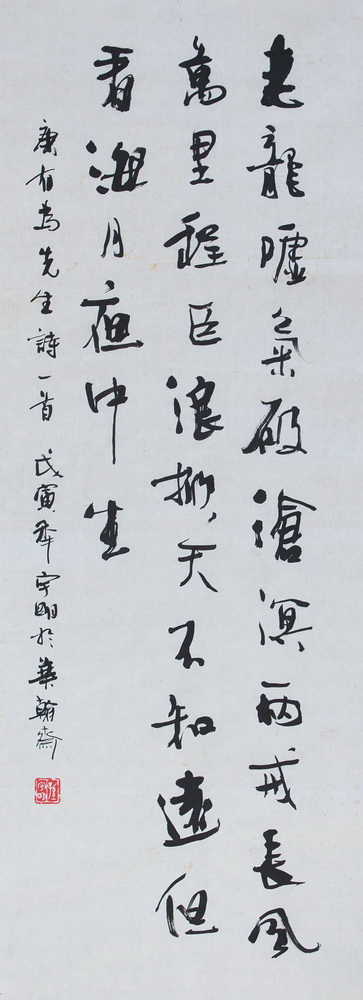 老龍噓氣破滄溟兩戒長風
萬里程巨浪掀天不知遠但
看海月夜中生
康有為先生詩一首 戊寅年宇明於華翰齋